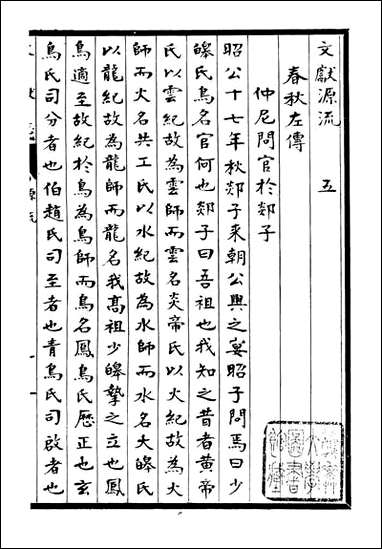 文獻源流 五
春秋左傳
仲尼問官於郯子
昭公十七年秋郯子来朝公與之宴昭子問焉曰少
皞氏鳥名官何也郯子曰吾祖也我知之昔者黄帝
氏以雲紀故為雲師而雲名炎帝氏以火紀故為火
師而火名共工氏以水紀故為水師而水名大皞氏
以龍紀故為龍師而龍名我髙祖少皞摯之立也鳳
鳥適至故紀於鳥為鳥師而鳥名鳳鳥氏歷正也玄
鳥氏司分者也伯趙氏司至者也青鳥氏司啟者也